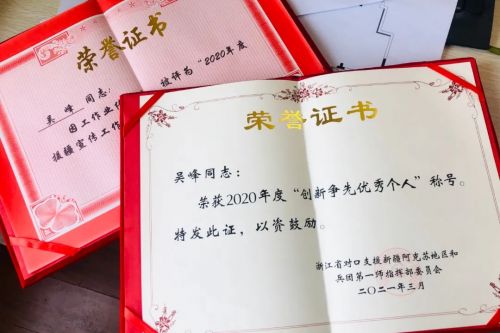 荣誉证书
吴峰 同志:
因工作业
被评为“2020年度
援疆宣传工作
荣誉证书
吴峰同志:
荣获2020年度“创新争先优秀个人”称号。
特发此证,以资鼓励。
浙江省对口支援新疆阿克苏地区和
兵团第一师指挥部委员会
二〇二一年三月